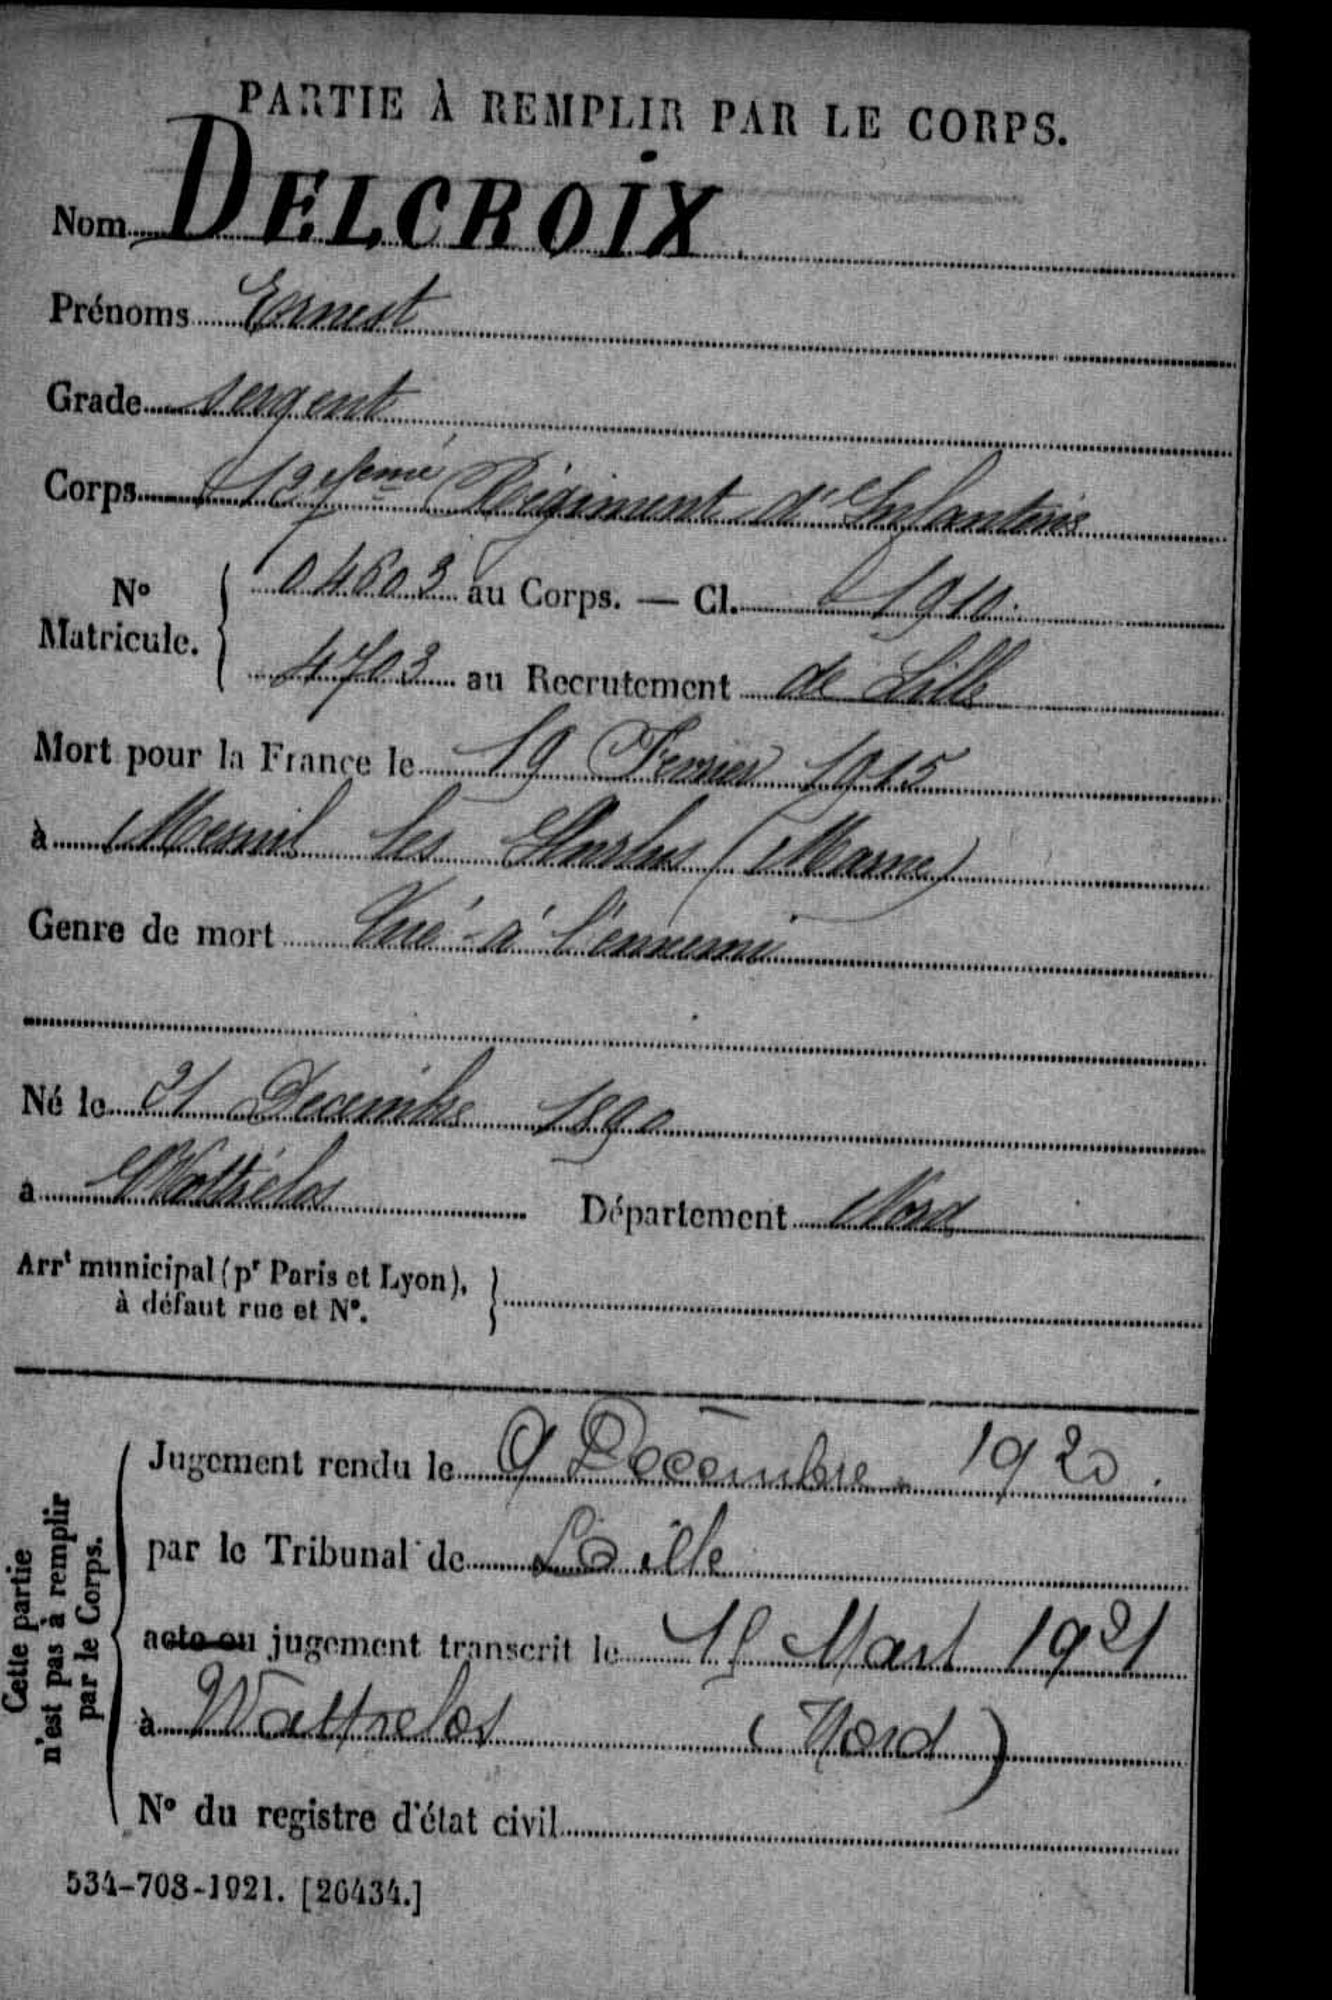 PARTIE À REMPLIR PAR LE CORPS.
Nom DELCROIX
Prénoms Ernest
Grade sergent
Corps Régiment d'Infanterie
N° Matricule. 04603 au Corps. — Cl. 1910.
4703 au Recrutement de Lille
Mort pour la France le 19 Fevrier 1915
à Mesnil les Hurlus (Marne)
Genre de mort Tué à l'ennemi
Né le 21 Decembre 1890
à Wattrelos Département Nord
Arrt municipal (pr Paris et Lyon),
à défaut rue et N°.
Cette partie
n'est pas à remplir
par le Corps.
Jugement rendu le 9 Décembre 1920.
par le Tribunal de Lille
acte ou jugement transcrit le Mars 1921
à Wattrelos (Nord)
N° du registre d'état civil
534-708-1921. [26434.]